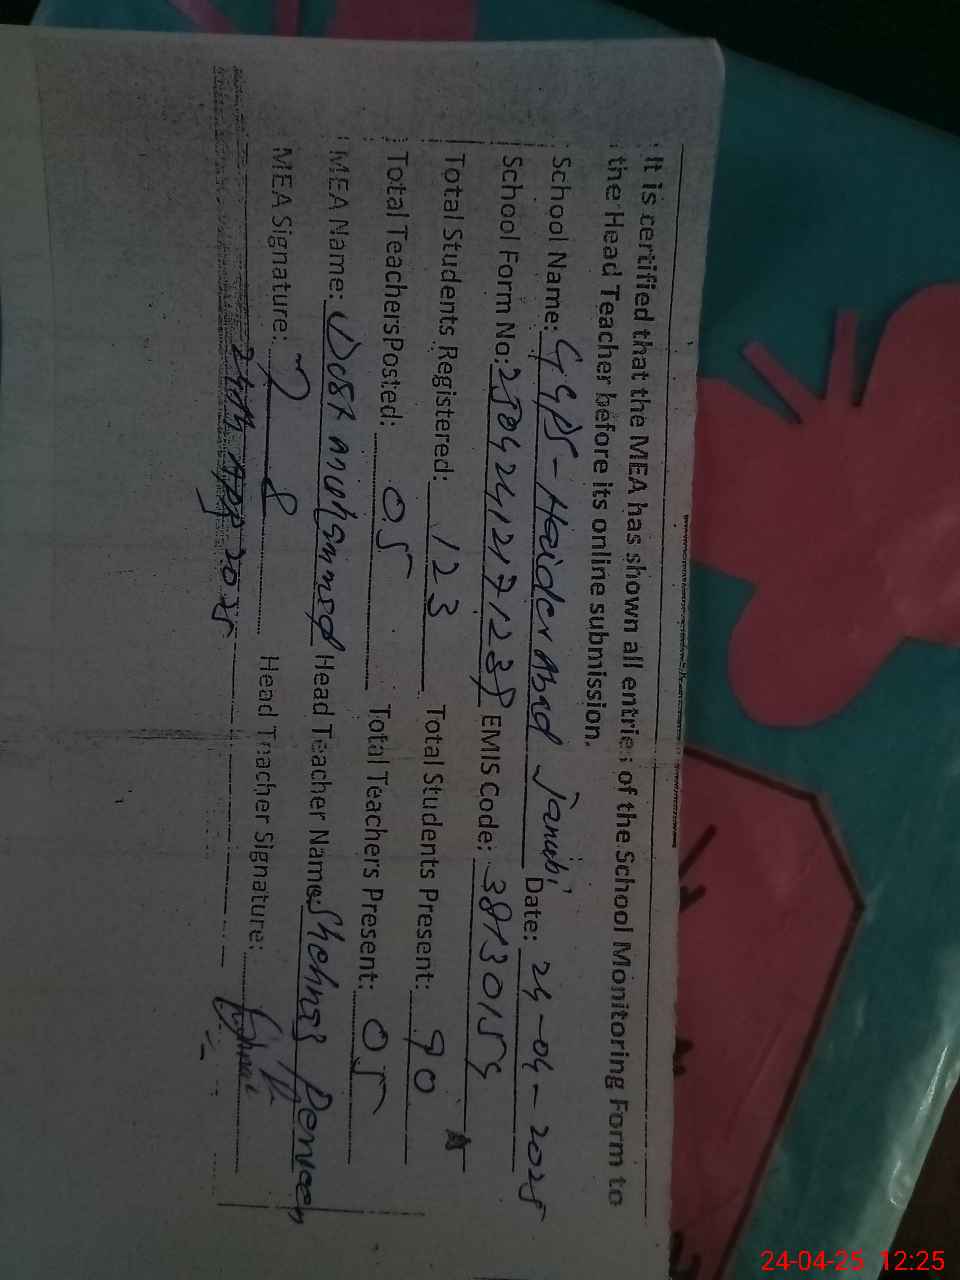 It is certified that the MEA has shown all entries of the School Monitoring Form to
the Head Teacher before its online submission.
School Name: GGPS-Haider Abad Janubi Date: 24-04-2025
School Form No: EMIS Code: 38130154
Total Students Registered: 123 Total Students Present: 90
Total TeachersPosted: 05 Total Teachers Present: 05
MEA Name: Dost Muhammad Head Teacher Name: Shehnaz Perveen
MEA Signature: Head Teacher Signature:
24-04-25 12:25